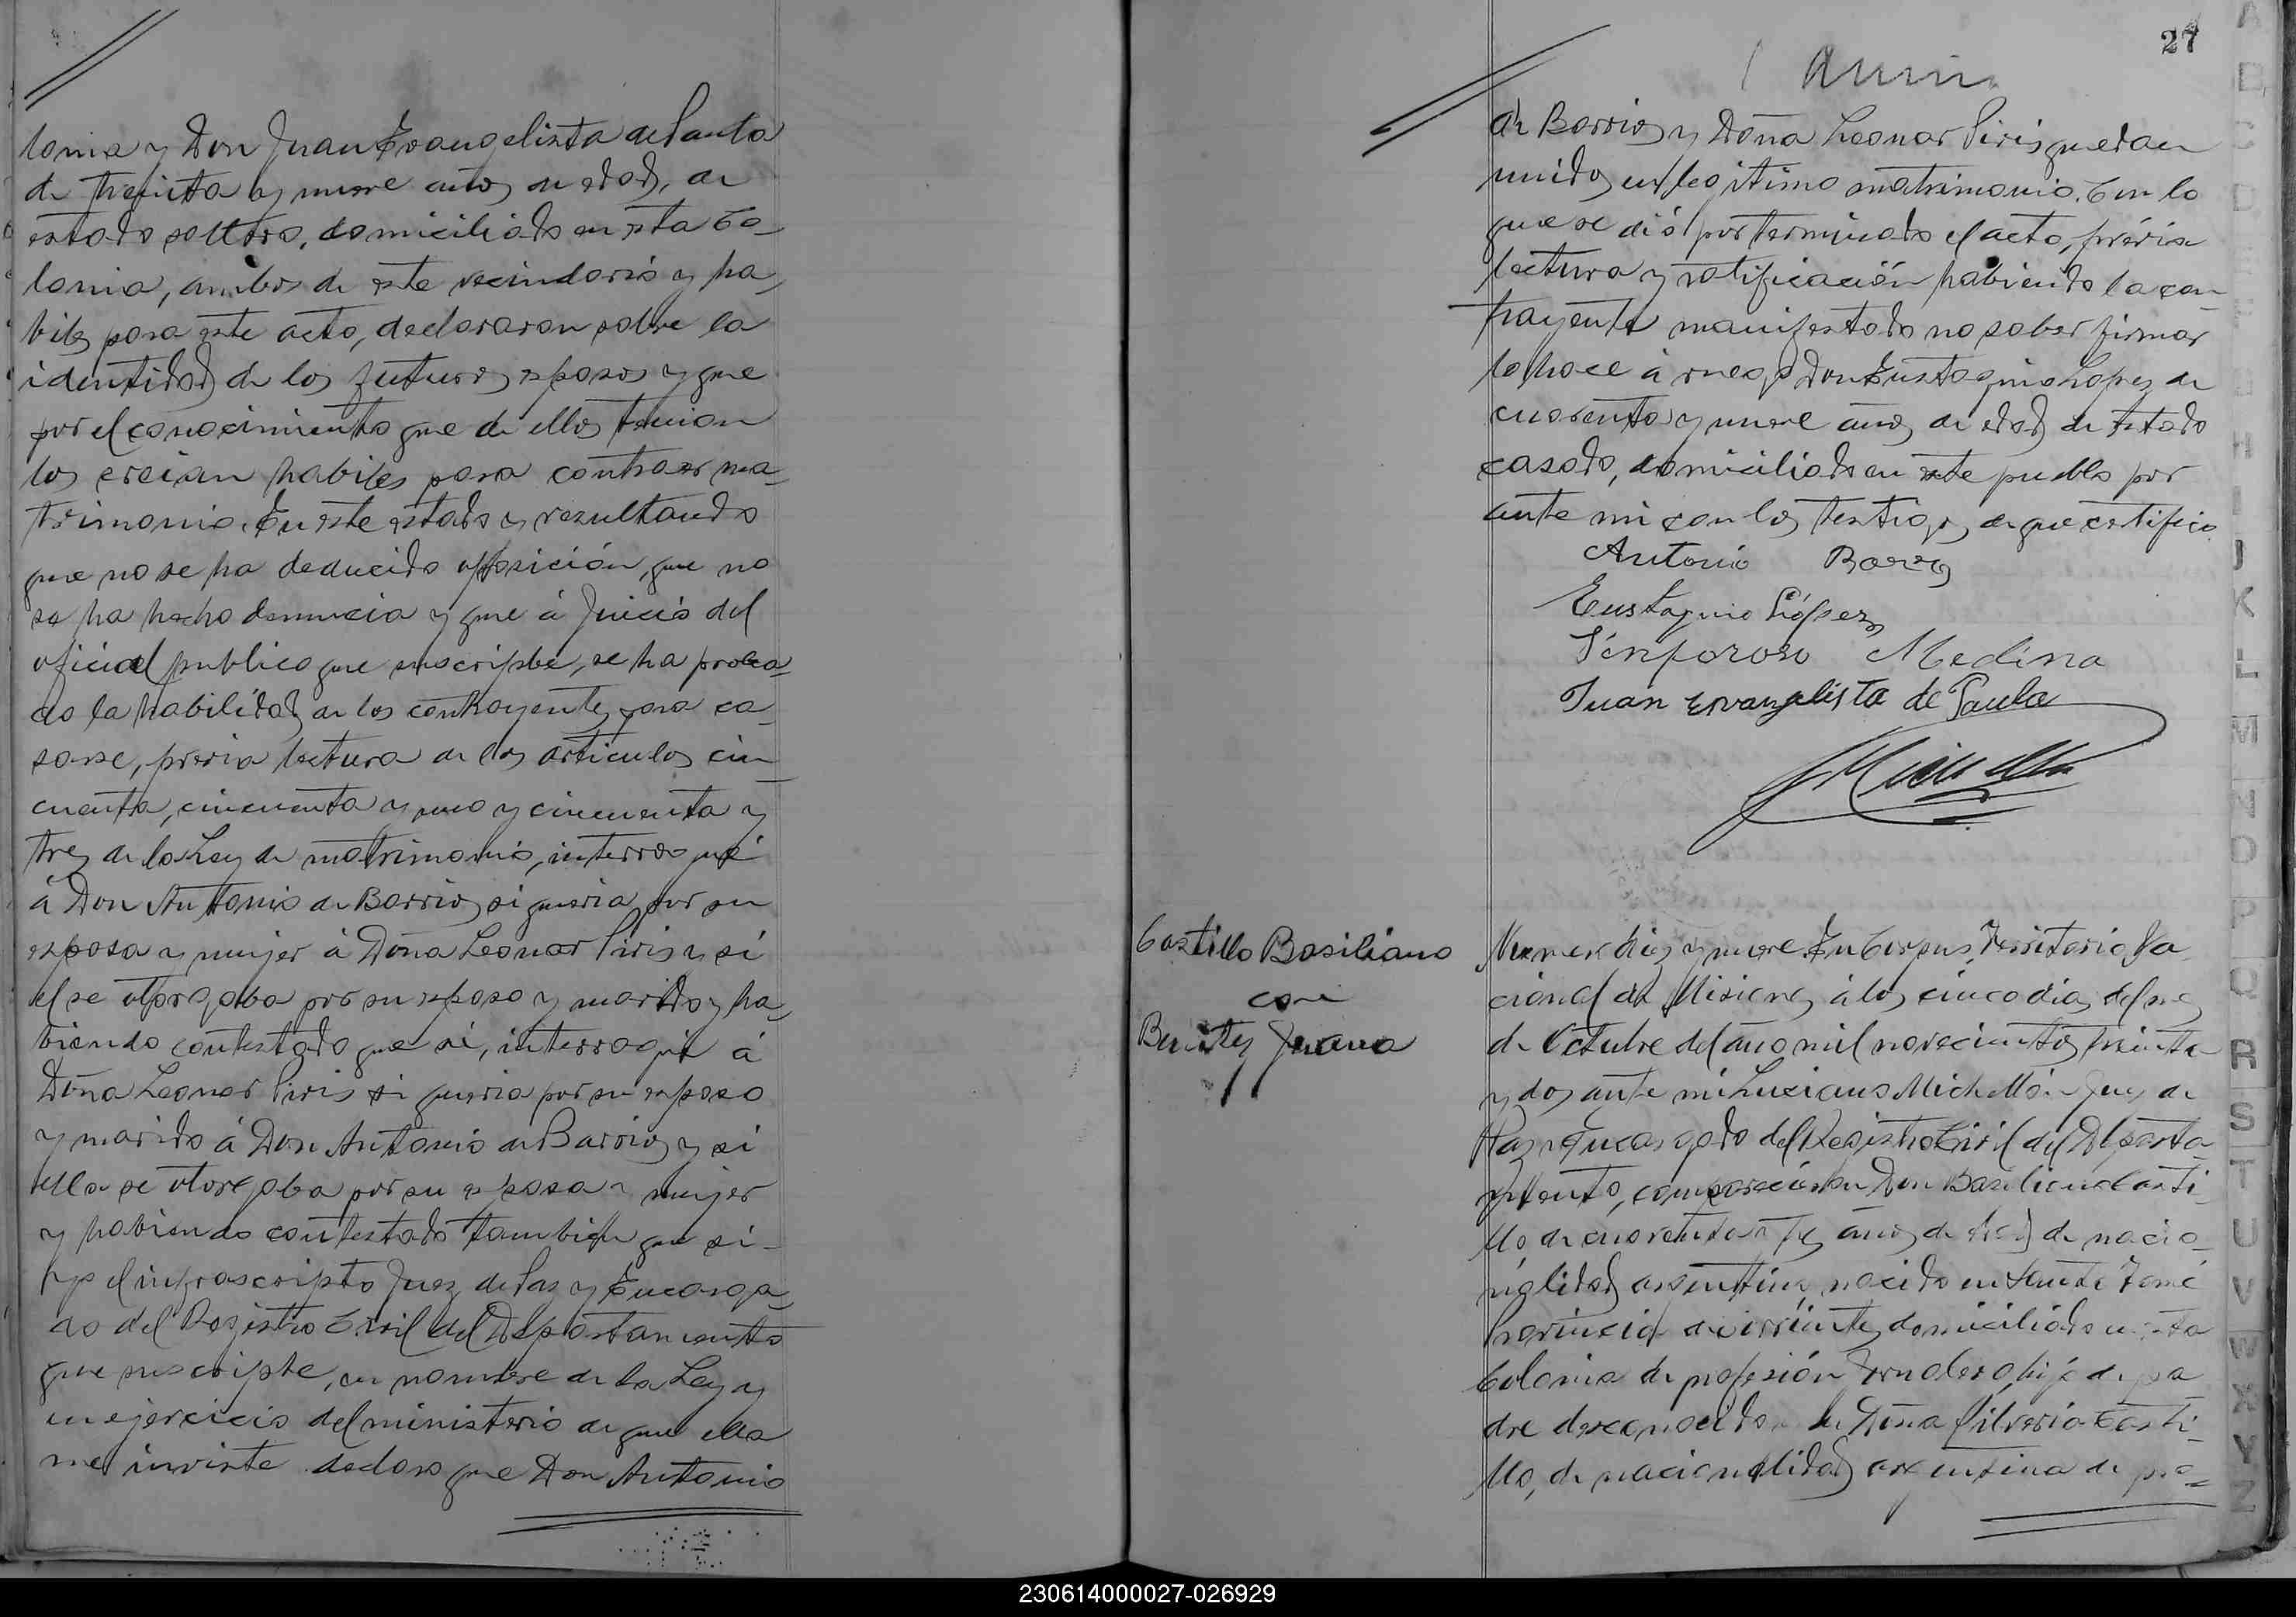 lonia y Don Juan Evangelista de Paula
de treinta y nueve años de edad, de
estado soltero, domiciliado en esta Co-
lonia, ambos de este vecindario y ha-
biles para este acto, declararon sobre la
identidad de los futuros esposos y que
por el conocimiento que de ellos tenian
los creian habiles para contraer ma-
trimonio. En este estado y resultando
que no se ha deducido oposición, que no
se ha hecho denuncia y que á juicio del
oficial publico que suscribe, se ha proba-
do la habilidad de los contrayentes para ca-
sarse, previa lectura de los articulos cin-
cuenta, cincuenta y uno y cincuenta y
tres de la Ley de matrimonio, interrogué
á Don Antonio de Barrios si queria por su
esposa y mujer á Doña Leonor Piris y si
el se otorgaba por su esposo y marido y ha-
biendo contestado que si, interrogué á
Doña Leonor Piris si queria por su esposo
y marido á Don Antonio de Barrios y si
ella se otorgaba por su esposa y mujer
y habiendo contestado tambien que si-
yo el infrascripto Juez de Paz y Encarga-
do del Registro Civil del Departamento
que suscribe, en nombre de la Ley y
en ejercicio del ministerio de que ella
me inviste declaro que Don Antonio
27
de Barrios y Doña Leonor Piris quedan
unidos en legitimo matrimonio. Con lo
que se dió por terminado el acto, prévia
lectura y ratificación habiendo la con-
trayente manifestado no saber firmar
lo hace á ruego Don Eustaquio Lopez de
cuarenta y nueve años de edad de estado
casado, domiciliado en este pueblo por
ante mi con los testigos de que certifico.
Antonio Barrios
Eustaquio López
Sinforoso Medina
Juan Evangelista de Paula
Castillo Basiliano
con
Benitez Juana
Numero diez y nueve. En Corpus, Territorio Na-
cional de Misiones á los cinco dias del mes
de Octubre del año mil novecientos treinta
y dos ante mi Luciano Michellón Juez de
Paz y Encargado del Registro Civil del Departa-
mento, comparecieron Don Basiliano Casti-
llo, de cuarenta y tres años de edad de nacio-
nalidad argentina, nacido en Santo Tomé
Provincia de Corrientes domiciliado en esta
Colonia de profesión jornalero hijo de pa-
dre desconocido y de Doña Silveria Casti-
llo, de nacionalidad argentina de pro-
A
D
H
I
J
K
L
M
N
O
P
Q
R
S
T
U
V
W
X
Y
Z
230614000027-026929